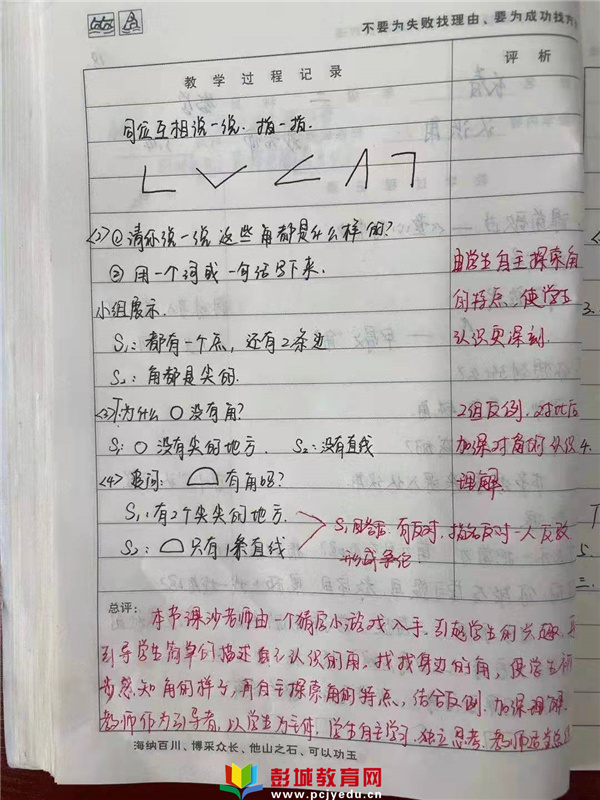 不要为失败找理由、要为成功找方
教学过程记录
评析
同位互相说一说.指一指.
<2>①请你说一说这些角都是什么样的?
②用一个词或一句话写下来.
小组展示.
S₁:都有一个点,还有2条边
S₂:角都是尖的.
由学生自主探索角
的特点,使学生
认识更深刻.
<3>T:为什么○没有角?
S₁:○没有尖的地方. S₂:没有直线
2组反例,对比后
加深对角的认识
理解
<4>追问: 有角吗?
S₁:有2个尖尖的地方.
S₂: 只有1条直线
S₁回答后.有反对,指名反对一人反驳
形成争论
总评:
本节课沙老师由一个猜层小游戏入手.引起学生的兴趣,
引导学生简单的描述自己认识的角.找找身边的角,使学生初
步感知角的样子,再自主探索角的特点,结合反例.加深理解.
教师作为引导者,以学生为主体,学生自主学习.独立思考.教师适当总
海纳百川、博采众长、他山之石、可以功玉
彭城教育网
www.pcjyedu.cn